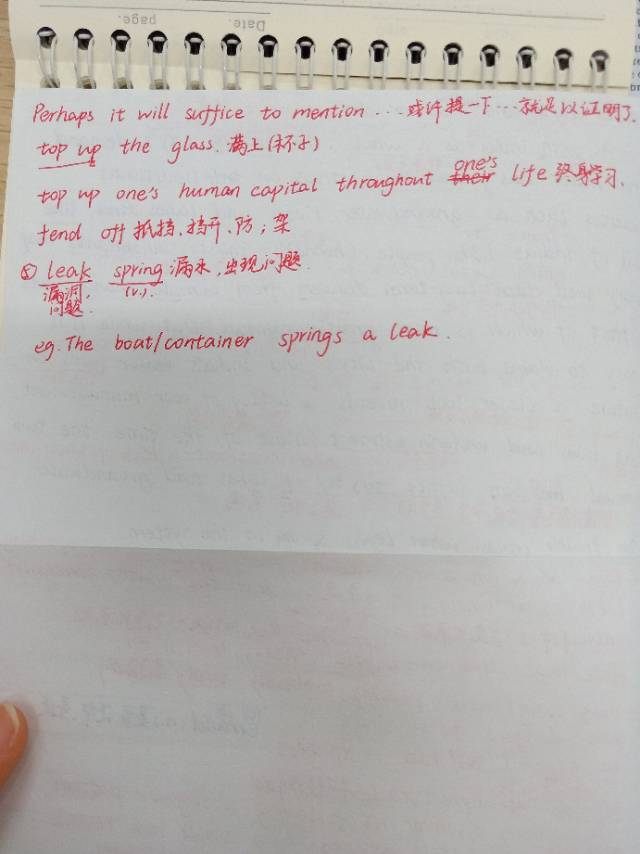 Date. page.
Perhaps it will suffice to mention ... 或许提一下 ... 就足以证明了.
top up the glass. 满上(杯子)
top up one's human capital throughout their one's life 终身学习.
fend off 抵挡、挡开、防;架
⑤ leak spring 漏水, 出现问题.
漏洞, (v.)
问题.
eg. The boat/container springs a leak.